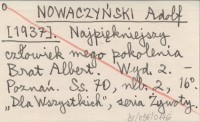 NOWACZYŃSKI Adolf
[1937]. Najpiękniejszy
człowiek mego pokolenia
Brat Albert. Wyd. 2. —
Poznań. Ss. 70, nlb. 2, 16°.
„Dla Wszystkich", seria Żywoty.